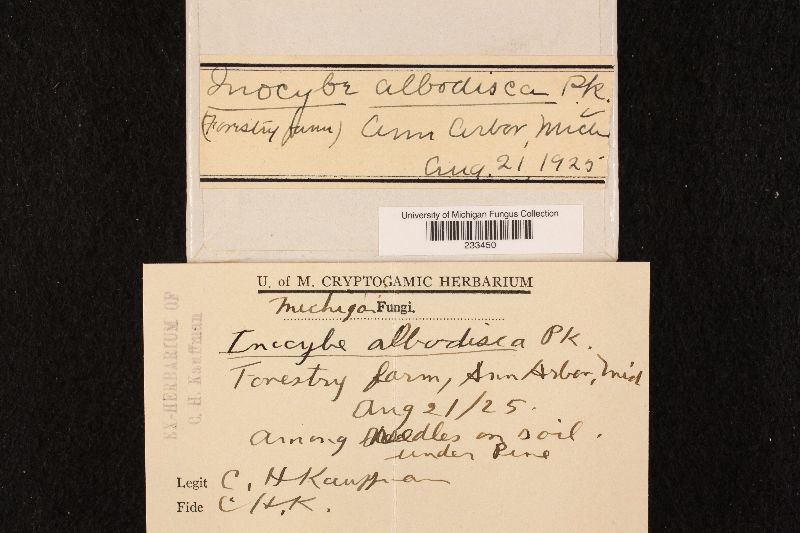 Inocybe albodisca Pk.
(Forestry farm) Ann Arbor, Mich
Aug. 21, 1925
University of Michigan Fungus Collection
233450
U. of M. CRYPTOGAMIC HERBARIUM
Michigan Fungi.
Inocybe albodisca Pk.
Forestry farm, Ann Arbor, Mich
Aug 21/25.
among needles on soil.
under Pine
Legit C. H Kauffman
Fide C H.K.
EX-HERBARIUM OF
C. H. Kauffman